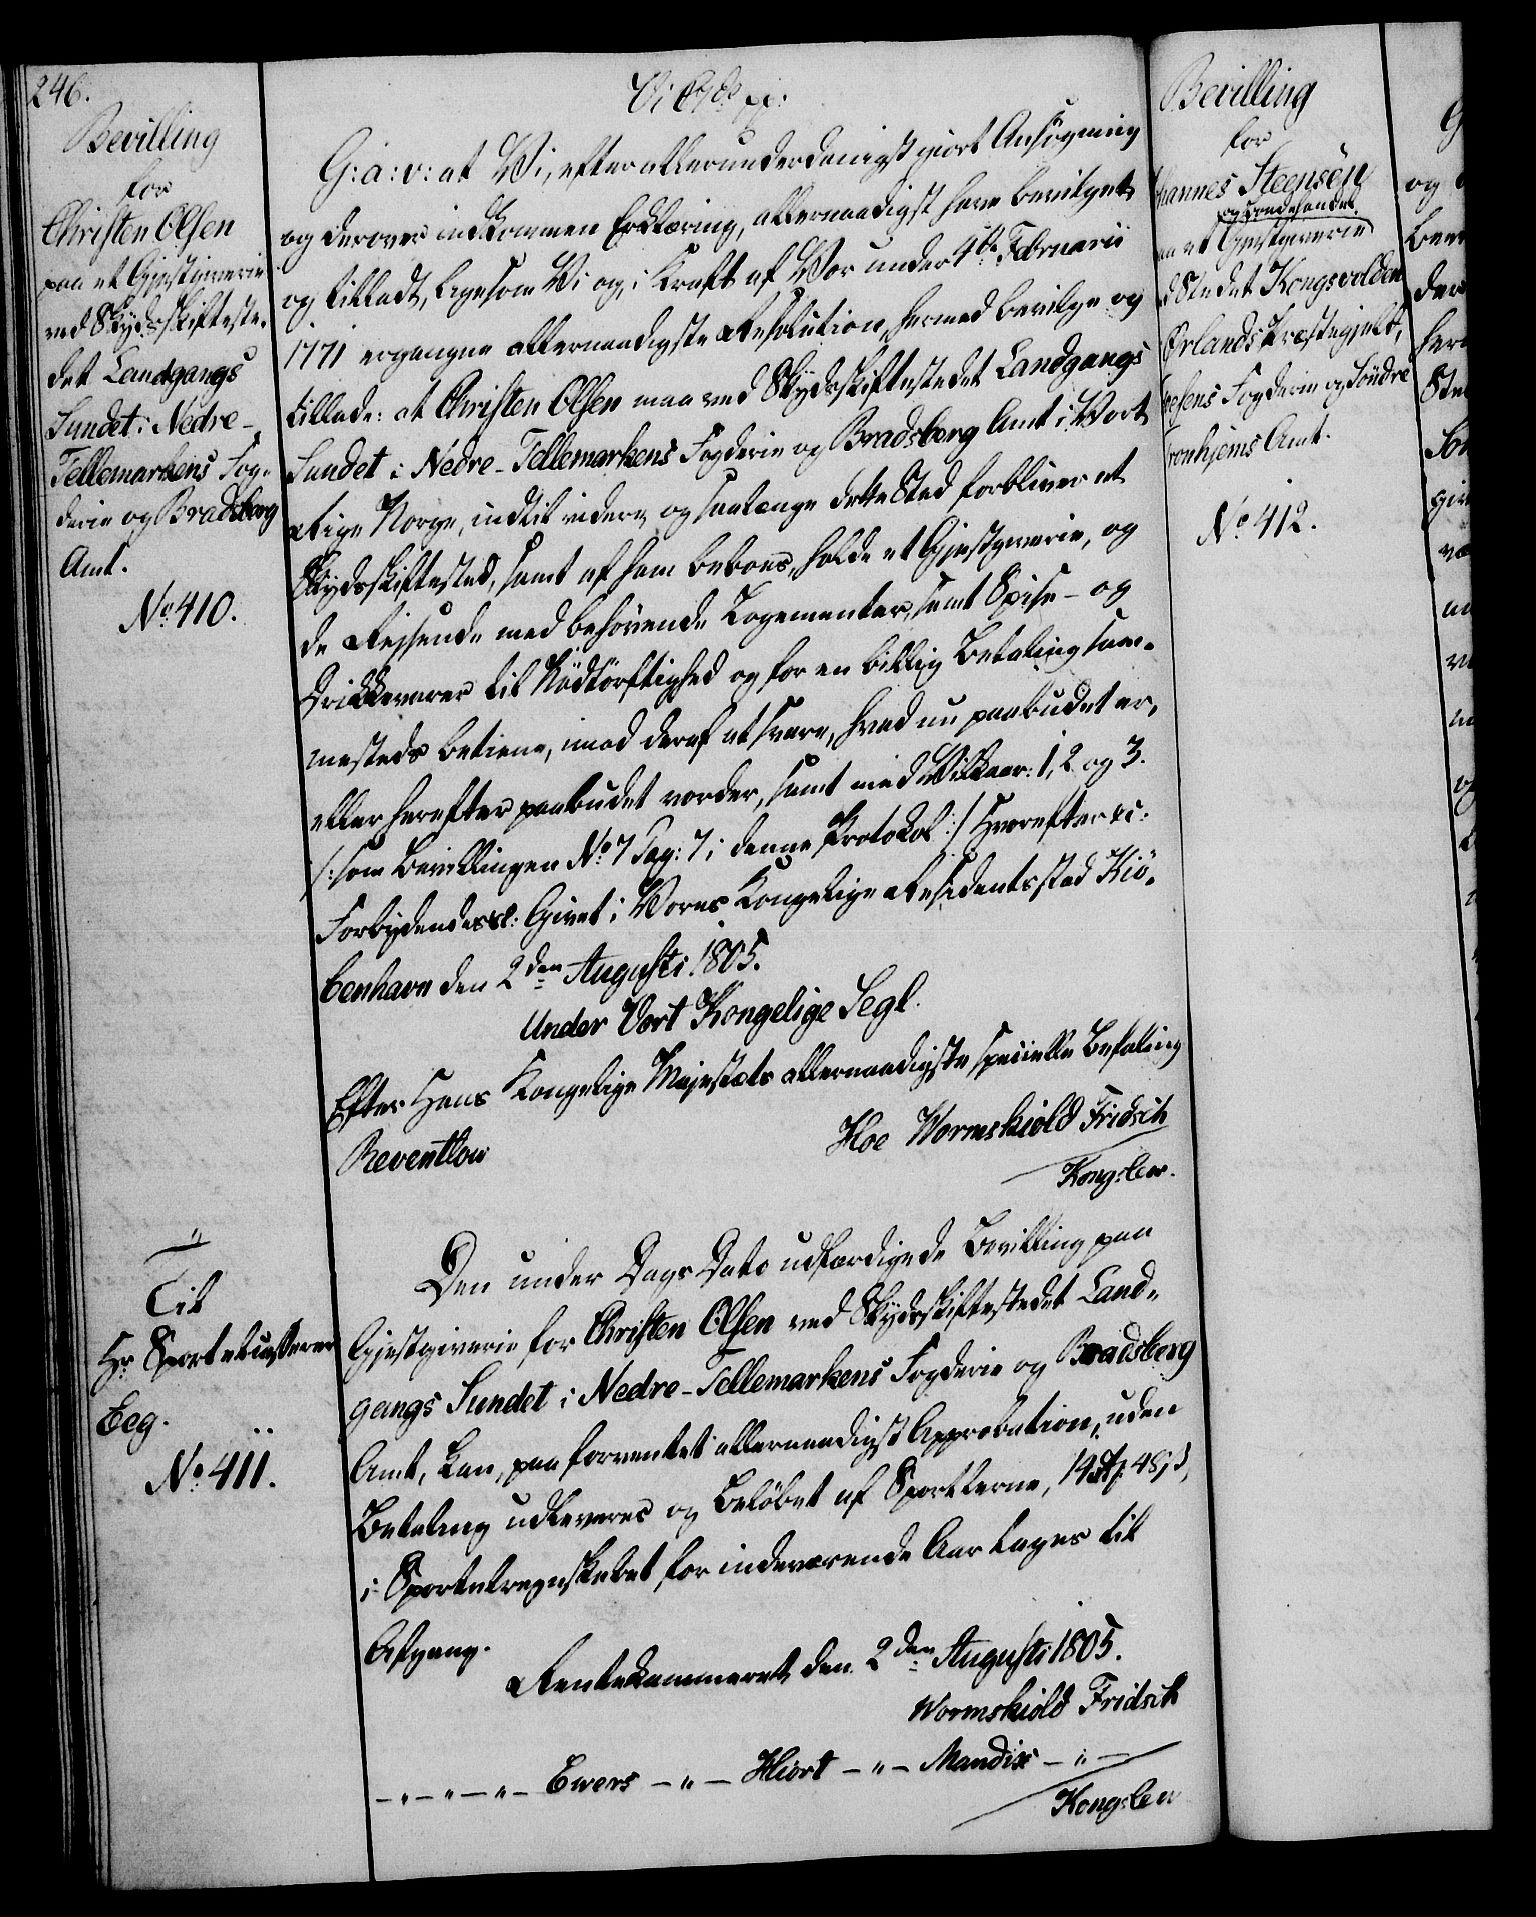 246.
Bevilling
for
Christen Olsen
paa et Gjestgiverie
ved Skydsskifteste-
det Landgangs
Sundet i Nedre-
Tellemarkens Fog-
derie og Bradsberg
Amt.
No. 410.
G: a: v: at Vi, efter allerunderdanigst giort Ansøgning
og derover indkommen Erklæring, allernaadigst have bevilget
og tilladt, ligesom Vi og, i Kraft af Vor under 4de Februarii
1771 ergangne allernaadigste Resolution, hermed bevilge og
tillade: at Christen Olsen maa ved Skydsskiftestedet Landgangs
Sundet i Nedre-Tellemarkens Fogderie og Bradsberg Amt i Vort
Rige Norge, indtil videre, og saalænge dette Sted forbliver et
Skydsskiftested, samt af ham beboes, holde et Gjestgiverie, og
de Reisende med behøvende Logementer, samt Spise- og
Drikkevarer til Nødtørftighed og for en billig Betaling sam-
mesteds betiene, imod deraf at svare, hvad nu paabudet er,
eller herefter paabudet vorder, samt med Vilkaar: 1, 2 og 3.
/: som Bevillingen No. 7 Pag: 7 i denne Protokol :/ Hvorefter &c:
Forbydendes &c: Givet i Vores Kongelige Residentsstad Kiö-
benhavn den 2den Augusti 1805.
Under Vort Kongelige Segl.
Efter Hans Kongelige Majestæts allernaadigste specielle Befaling
Reventlow Hoe Wormskiold Fridsch
Kongslew.
Til
Hr Sportelcasserer
Eeg.
No. 411.
Den under Dags Dato udfærdigede Bevilling paa
Gjestgiverie for Christen Olsen ved Skydsskiftestedet Land-
gangs Sundet i Nedre-Tellemarkens Fogderie og Bradsberg
Amt, kan, paa forventet allernaadigst Approbation, uden
Betaling udleveres og Beløbet af Sportlerne, 14 Rdr 48 s,
i Sportelregnskabet for indeværende Aar tages til
Afgang.
Rentekammeret den 2den Augusti 1805.
Wormskiold Fridsch
Ewers - " - Hiort - " - Mandix - " -
Kongslew
Bevilling
for
hannes Steensen
og Landhandel
aa et Gjestgiverie
d Stedet Kongsvolden
Ørlands Præstegjeld,
osens Fogderie og Söndre
ronhjems Amt.
No. 412.